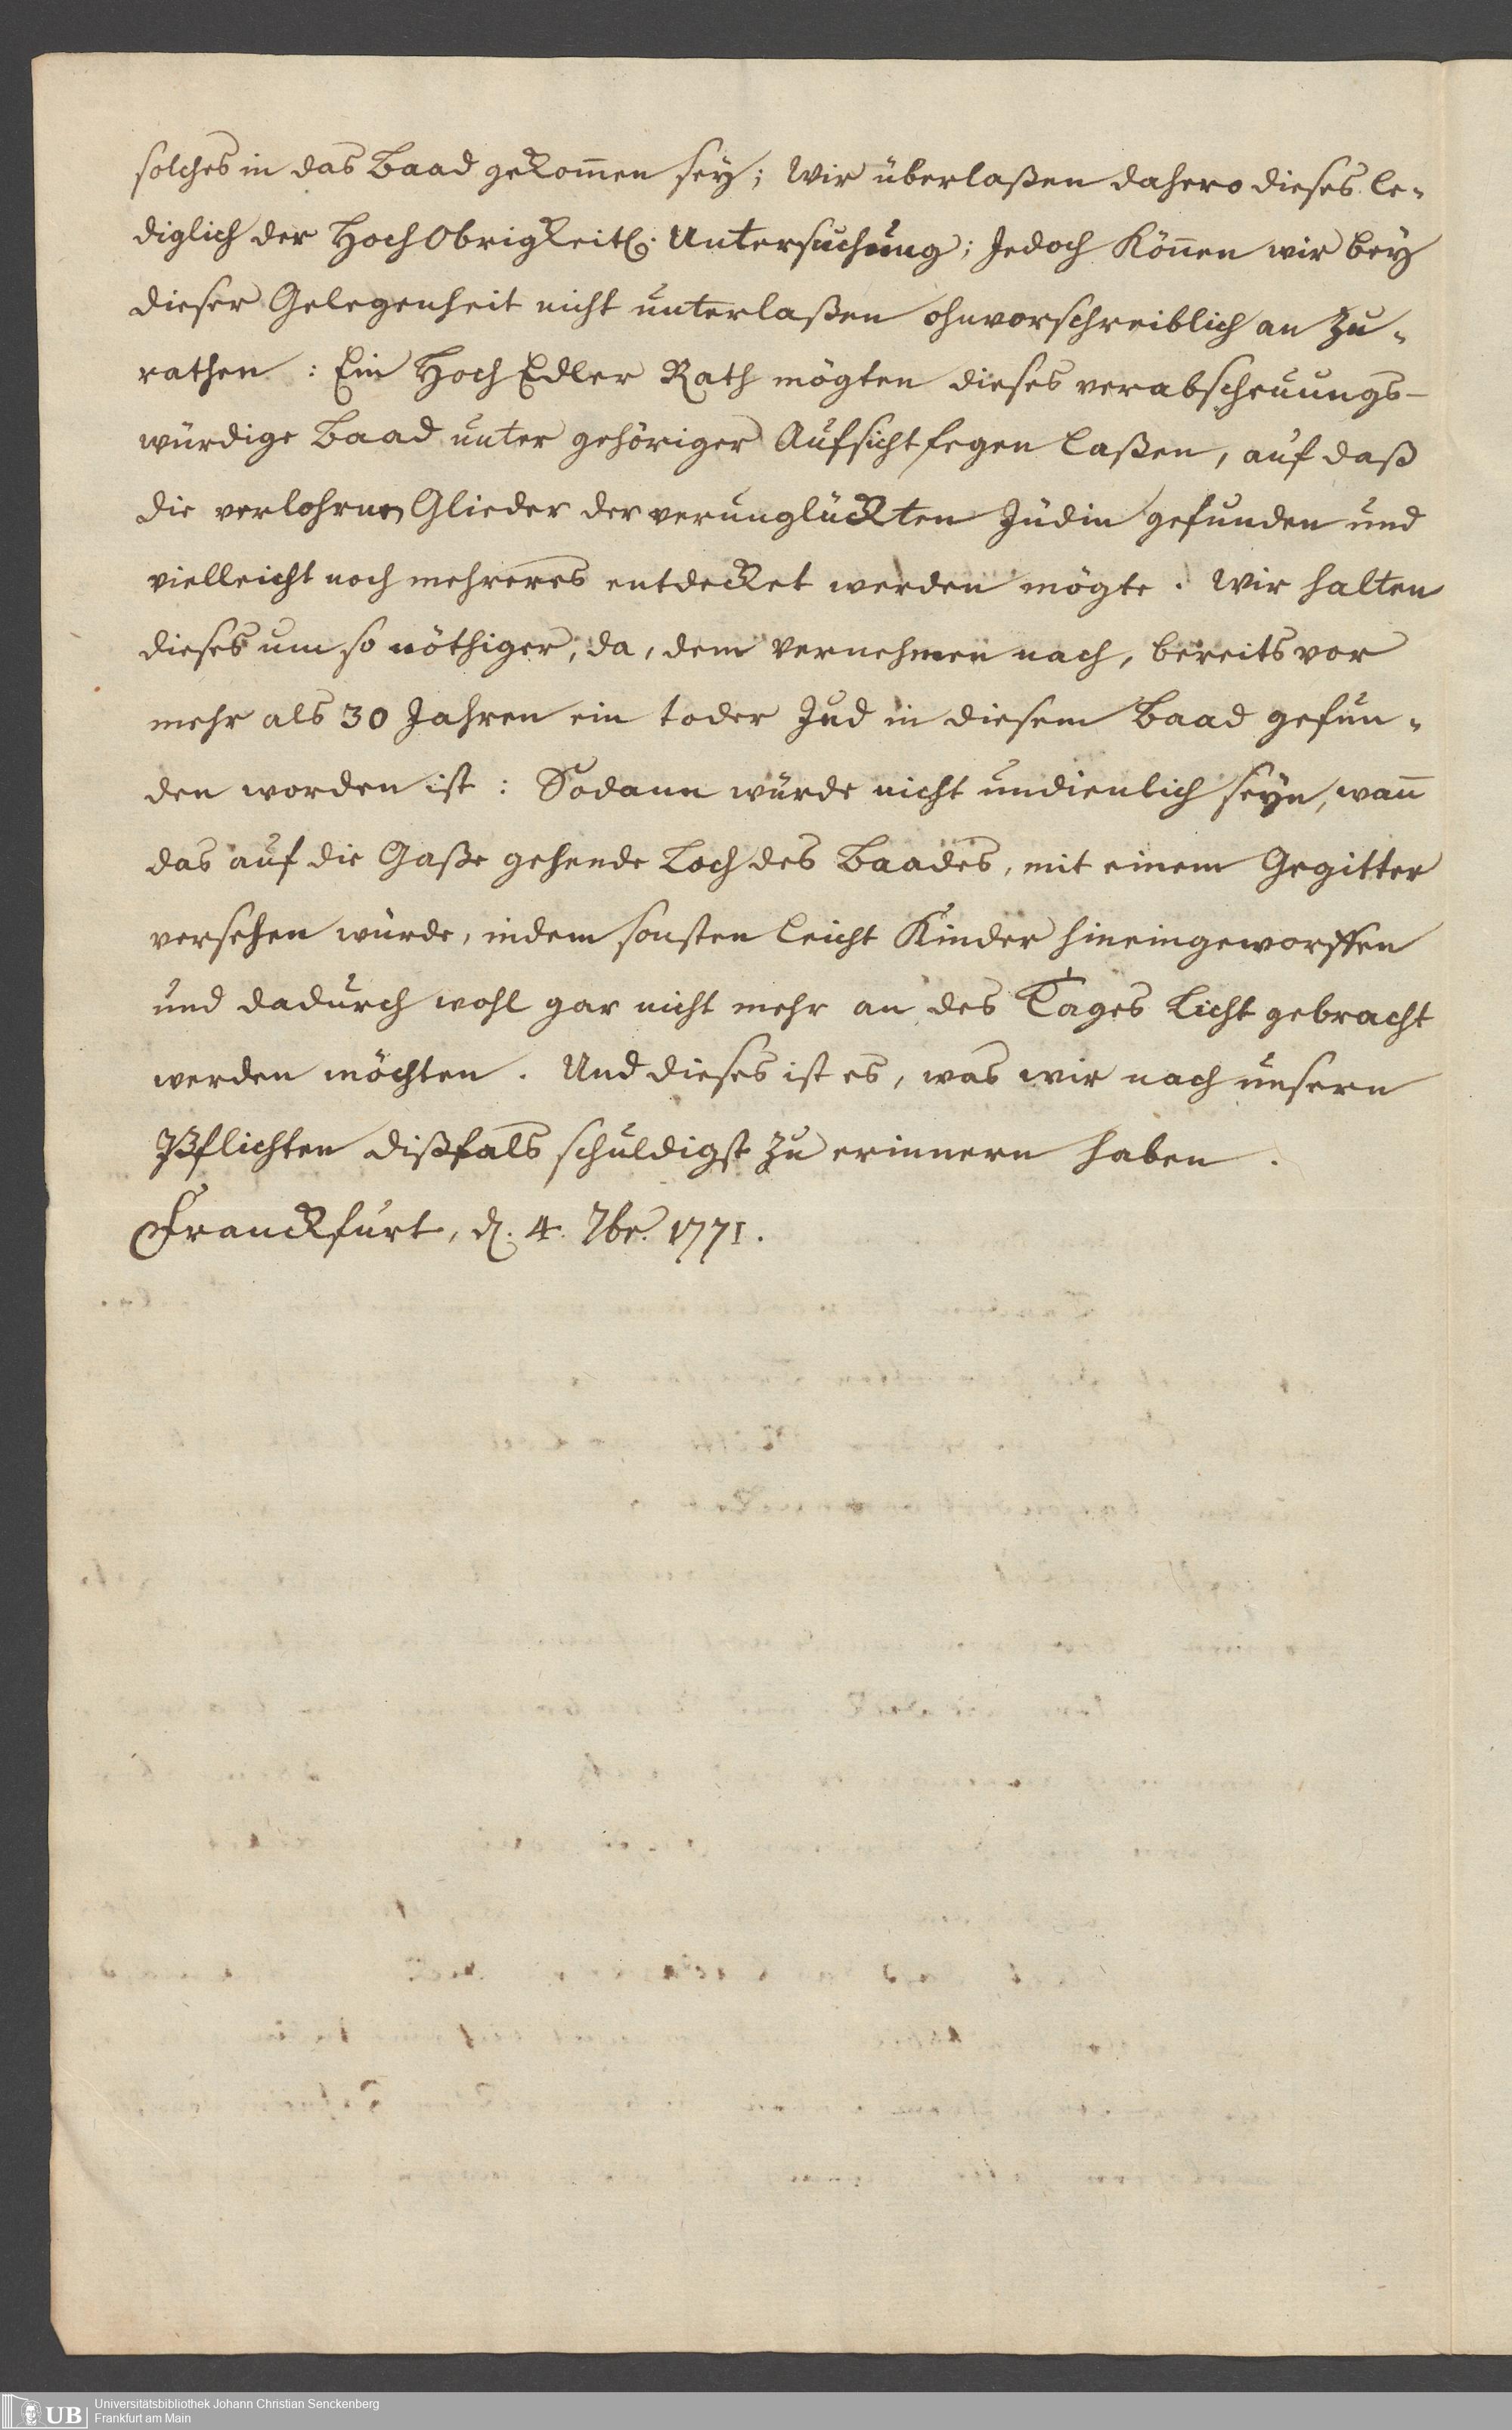 solches in das Baad gekom̅en seÿ; Wir überlaßen dahero dieses le-
diglich der HochObrigkeitl. Untersuchung; Jedoch Kön̅en wir beÿ
dieser Gelegenheit nicht unterlaßen ohnvorschreiblich an zu-
rathen: Ein HochEdler Rath mögten dieses verabscheuungs-
würdige Baad unter gehöriger Aufsicht fegen laßen, auf daß
die verlohrnen Glieder der verunglückten Jüdin gefunden und
vielleicht noch mehreres entdecket werden mögte. Wir halten
dieses um so nöthiger, da, dem Vernehmen nach, bereits vor
mehr als 30 Jahren ein toder Jud in diesem Baad gefun-
den worden ist: Sodann würde nicht undienlich seÿn, wan̅
das auf die Gaße gehende Loch des Baades, mit einem Gegitter
versehen würde, indem sonsten leicht Kinder hineingeworffen
und dadurch wohl gar nicht mehr an des Tages Licht gebracht
werden möchten. Und dieses ist es, was wir nach unsern
Pflichten dißfals schuldigst zu erinnern haben.
Franckfurt, d. 4. 7br. 1771.
UB
Universitätsbibliothek Johann Christian Senckenberg
Frankfurt am Main